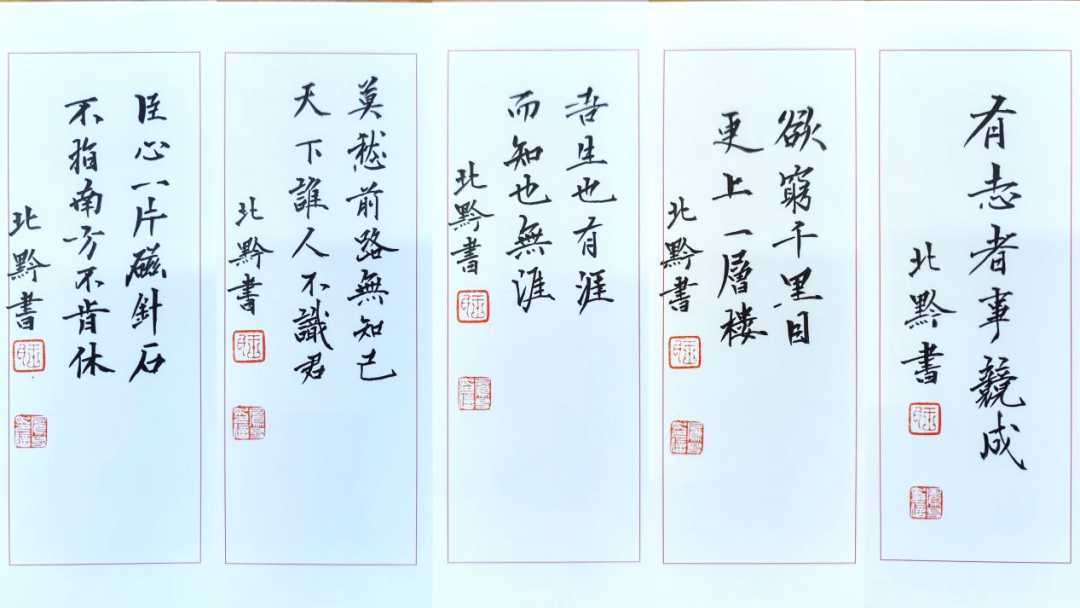 有志者事競成
北黔書
欲窮千里目
更上一層楼
北黔書
吾生也有涯
而知也無涯
北黔書
莫愁前路無知己
天下誰人不識君
北黔書
臣心一片磁針石
不指南方不肯休
北黔書